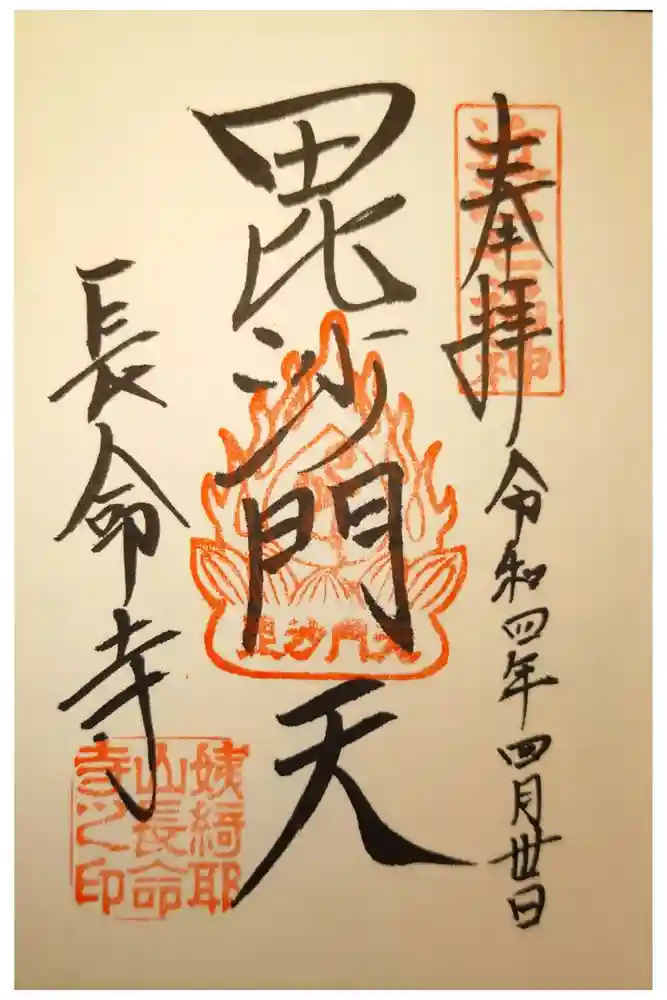 奉拝
令和四年四月丗日
毘沙門天
毘沙門天
長命寺
姨綺耶
山長命
寺之印